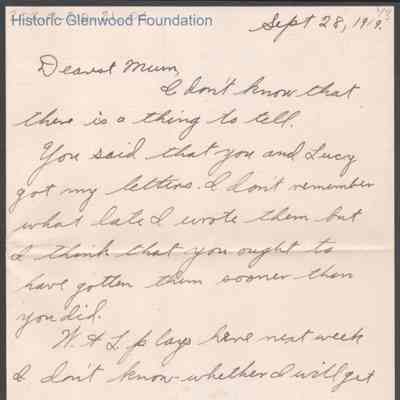 Historic Glenwood Foundation
Sept 28, 1919.
Dearest Mum,
I don't know that
there is a thing to tell.
You said that you and Lucy
got my letters. I don't remember
what late I wrote them but
I think that you ought to
have gotten them sooner than
you did.
W. & L plays here next week
I don't know whether I will get